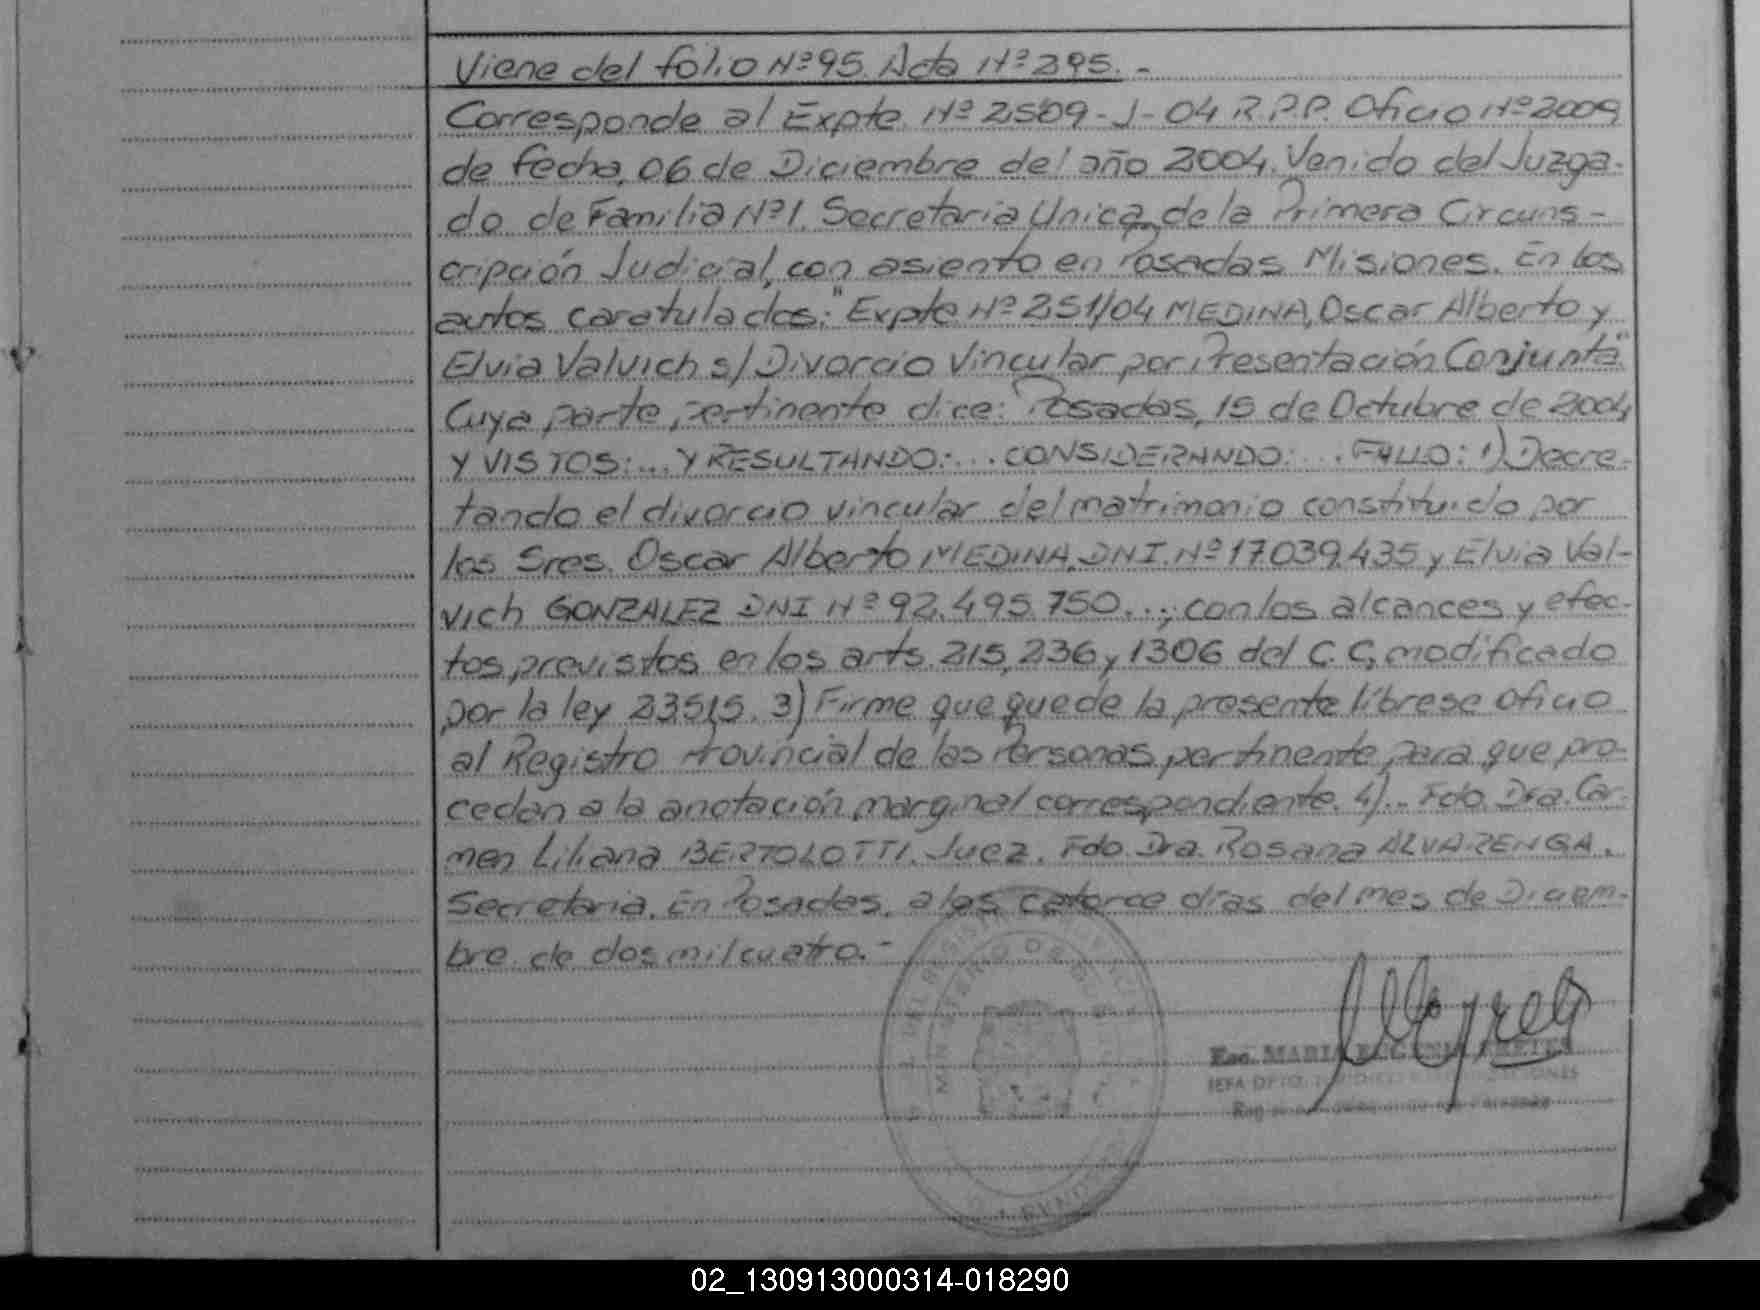 Viene del folio Nº 95. Acta Nº 295. -
Corresponde al Expte. Nº 2509-J-04 R.P.P. Oficio Nº 2009
de fecha, 06 de Diciembre del año 2004. Venido del Juzga-
do de Familia Nº 1. Secretaria Unica, de la Primera Circuns-
cripción Judicial, con asiento en Posadas Misiones. En los
autos caratulados: "Expte Nº 251/04 MEDINA, Oscar Alberto y
Elvia Valvich s/ Divorcio Vincular por Presentación Conjunta"
Cuya parte pertinente dice: Posadas, 15 de Octubre de 2004,
Y VISTOS:... Y RESULTANDO:... CONSIDERANDO:... FALLO: 1) Decre-
tando el divorcio vincular del matrimonio constituido por
los Sres. Oscar Alberto MEDINA, DNI. Nº 17.039.435 y Elvia Val-
vich GONZALEZ DNI Nº 92.495.750...; con los alcances y efec-
tos previstos en los arts. 215, 236 y 1306 del C.C. modificado
por la ley 23515. 3) Firme que quede la presente líbrese oficio
al Registro Provincial de las Personas pertinente para que pro-
cedan a la anotación marginal correspondiente. 4)... Fdo. Dra. Car-
men Liliana BERTOLOTTI. Juez. Fdo. Dra. Rosana ALVARENGA.
Secretaria. En Posadas, a los catorce días del mes de Diciem-
bre de dos mil cuatro. -
MINISTERIO DE
Esc. MARIA EUGENIA
JEFA DPTO.
02_130913000314-018290